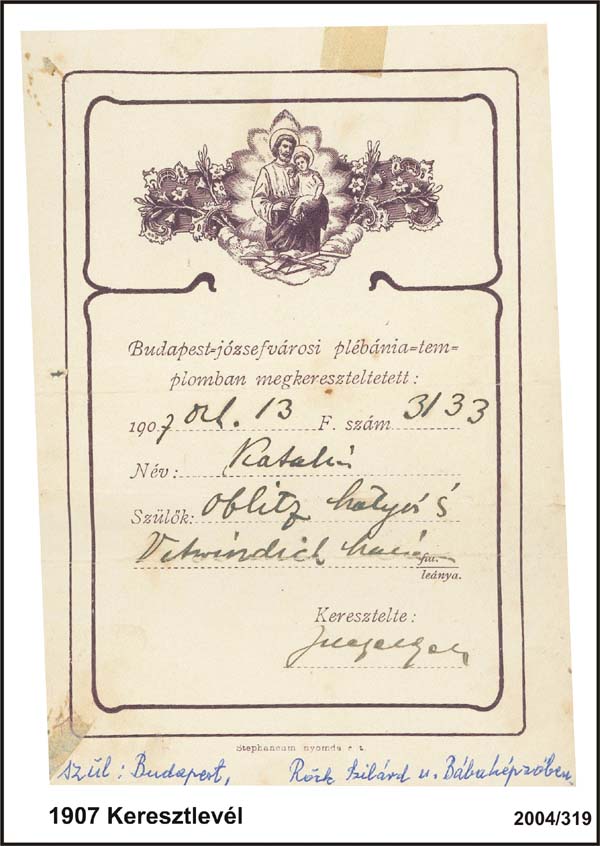 Budapest=józsefvárosi plébánia=tem=
plomban megkereszteltetett:
1907 okt. 13 F. szám 3133
Név: Katalin
Szülők: Oblitz Mátyás s
Mária fia.
leánya.
Keresztelte:
Stephaneum nyomda r. t.
szül: Budapest, Röck Szilárd u. Bábaképzőben
1907 Keresztlevél
2004/319